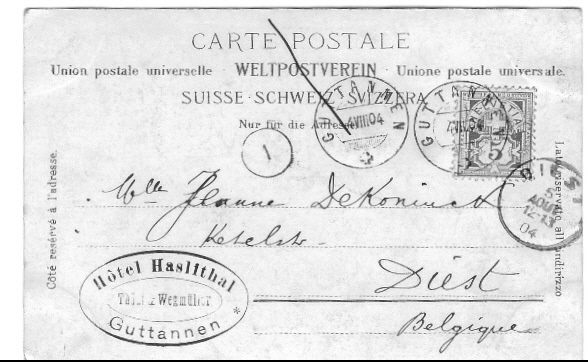 CARTE POSTALE
Union postale universelle. WELTPOSTVEREIN · Unione postale universale.
SUISSE · SCHWEIZ · SVIZZERA
Nur für die Adresse
GUTTANNEN
4.VIII.04
GUTTANNEN
VIII.04
5
1
DIEST
5
AOUT
12-13
04
Côté reservé à l'adresse.
Lato riservato all' indirizzo
Mlle Jeanne DeKoninck
Ketelstr.
Diest
Belgique
Hôtel Haslithal
Wegmüller
Guttannen